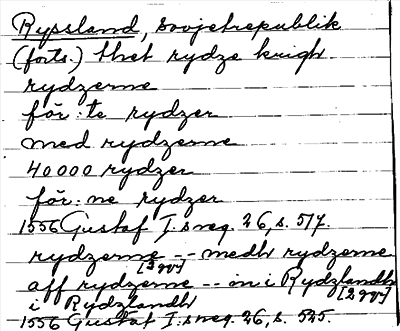 Ryssland, Sovjetrepublik
(forts.) thet rydze krigh
rydzerne
för: te rydzer
med rydzerne
40000 rydzer
för: ne rydzer
1556 Gustaf I:s reg. 26, s. 517.
rydzerne -- medh rydzerne
[3 ggr]
aff rydzerne -- in i Rydzlandh
[2 ggr]
i Rydzlandh
1556 Gustaf I:s reg. 26, s. 525.